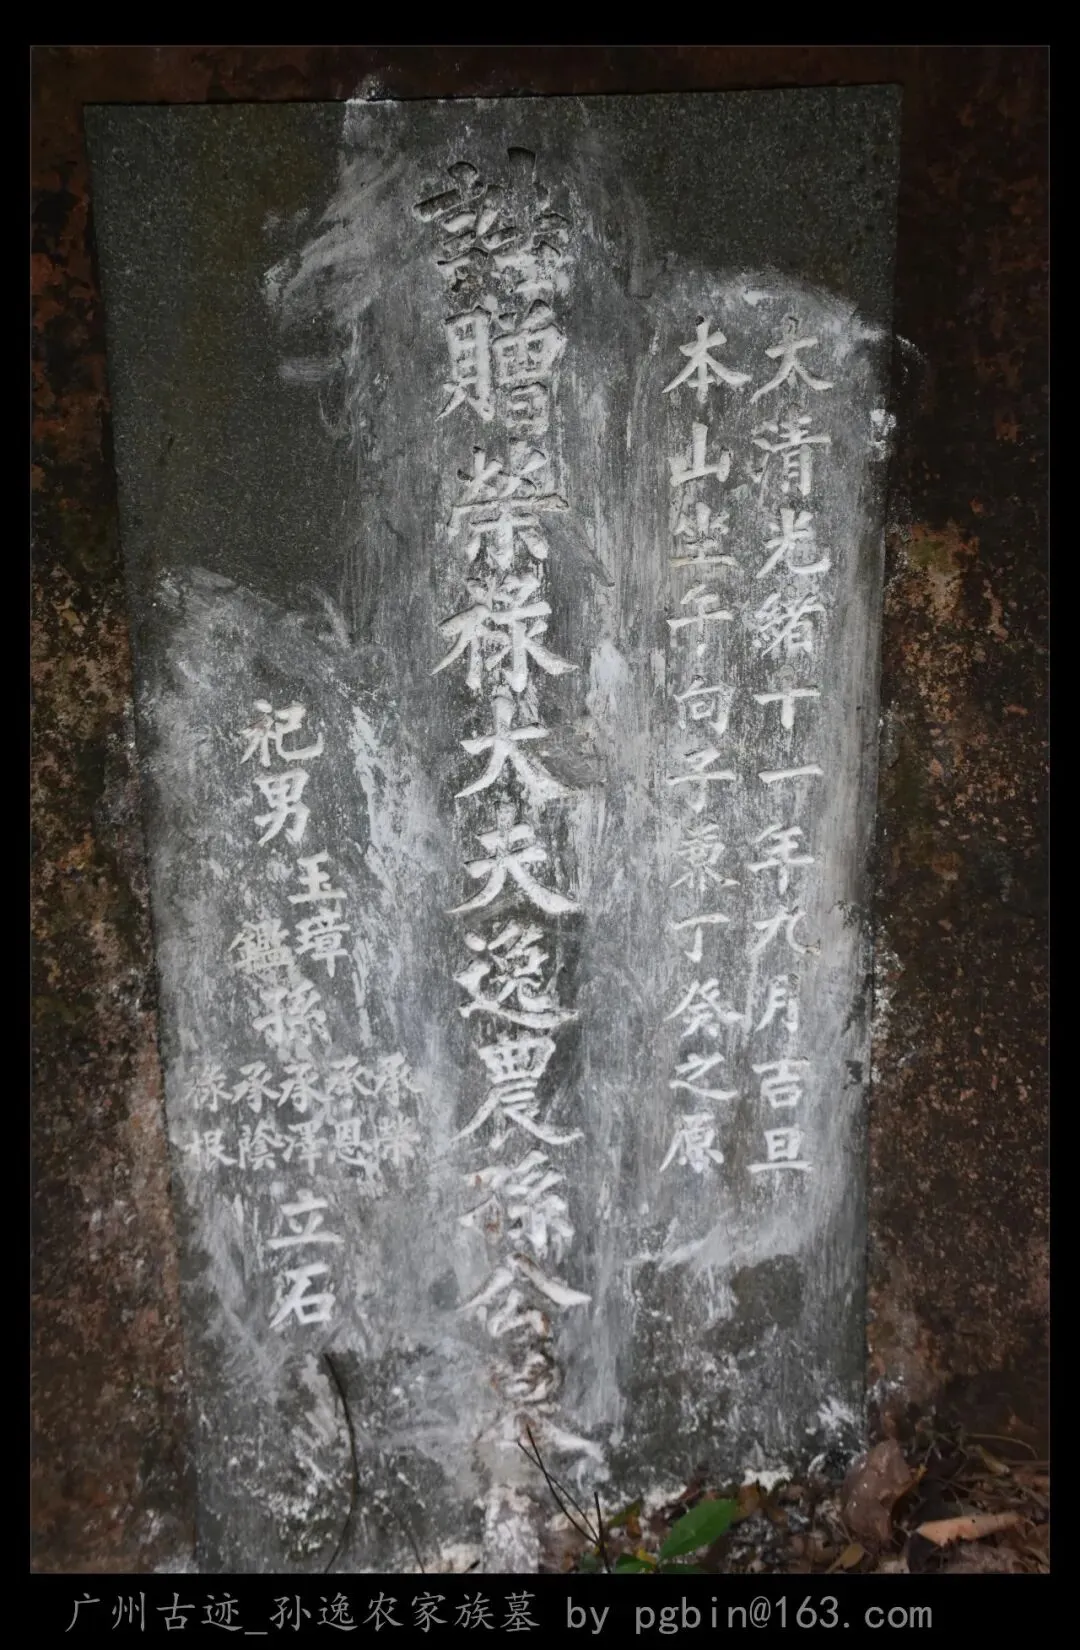 大清光緒十一年九月吉旦
本山坐午向子兼丁癸之原
誥贈榮祿大夫逸農孫公墓
祀男
玉璋
鑑
孫
承榮
承恩
承澤
承蔭
祿根
立石
广州古迹_孙逸农家族墓 by pgbin@163.com